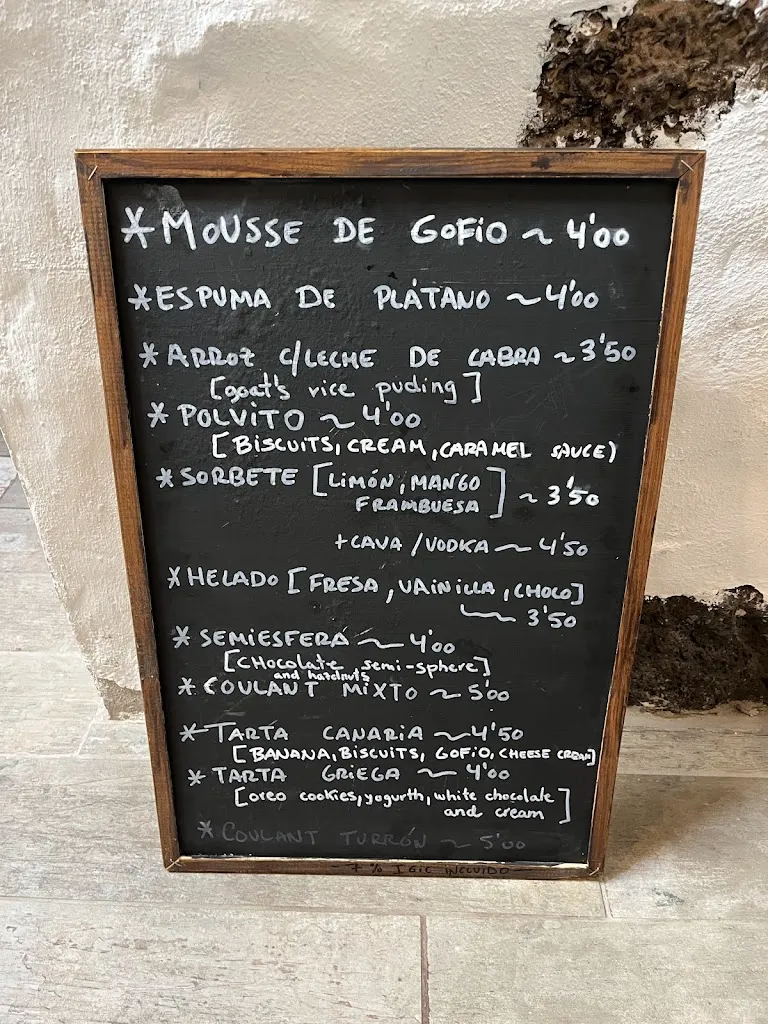 *MOUSSE DE GOFIO ~ 4'00
*ESPUMA DE PLÁTANO ~ 4'00
*ARROZ C/LECHE DE CABRA ~ 3'50
[goat's rice puding]
*POLVITO ~ 4'00
[BISCUITS, CREAM, CARAMEL SAUCE)
*SORBETE [LIMÓN, MANGO
FRAMBUESA] ~ 3'50
+CAVA/VODKA ~ 4'50
*HELADO [FRESA, VAINILLA, CHOCO]
~ 3'50
*SEMIESFERA ~ 4'00
[CHOCOLATE semi-sphere]
and hazelnuts
*COULANT MIXTO ~ 5'00
*TARTA CANARIA ~ 4'50
[BANANA, BISCUITS, GOFIO, CHEESE CREAM]
*TARTA GRIEGA ~ 4'00
[oreo cookies, yogurth, white chocolate
and cream]
*COULANT TURRÓN ~ 5'00
7% IGIC INCLUIDO